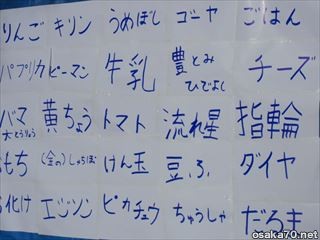 りんご キリン うめぼし ゴーヤ ごはん
パプリカ ピーマン 牛乳 豊とみひでよし チーズ
バマ大とうりょう 黄ちょう トマト 流れ星 指輪
もち (金の)しゃちほこ けん玉 豆ふ ダイヤ
お化け エジソン ピカチュウ ちゅうしゃ だるま
osaka70.net